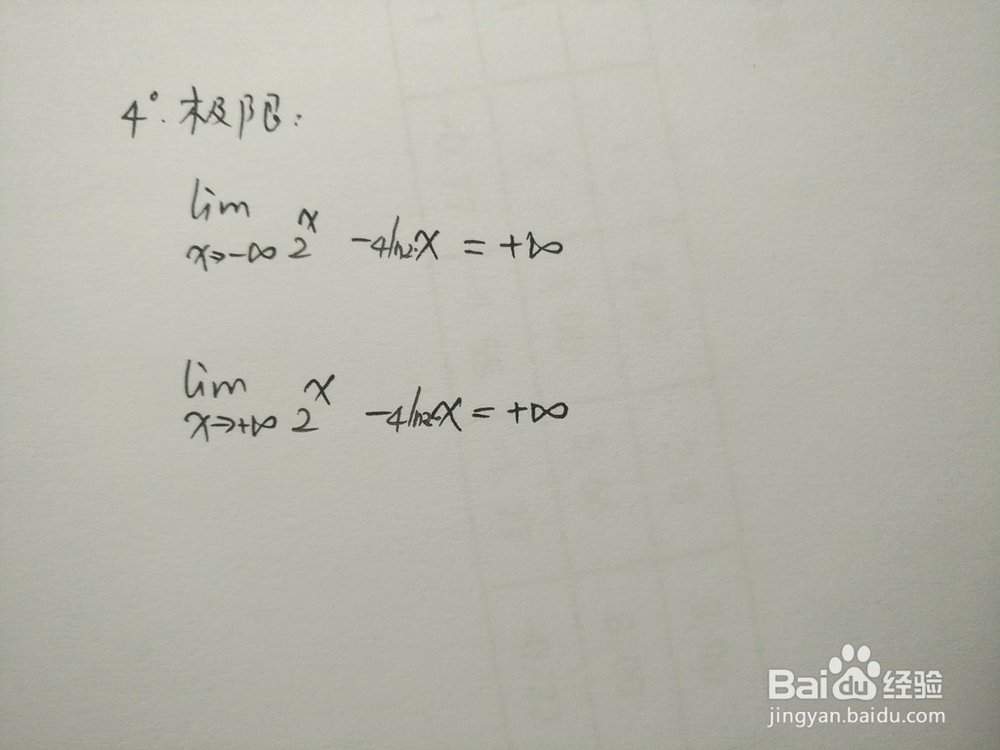 4°. 极限:
lim
x→-∞ 2^x -4ln2·x = +∞
lim
x→+∞ 2^x -4ln2·x = +∞
Baidu经验
jingyan.baidu.com